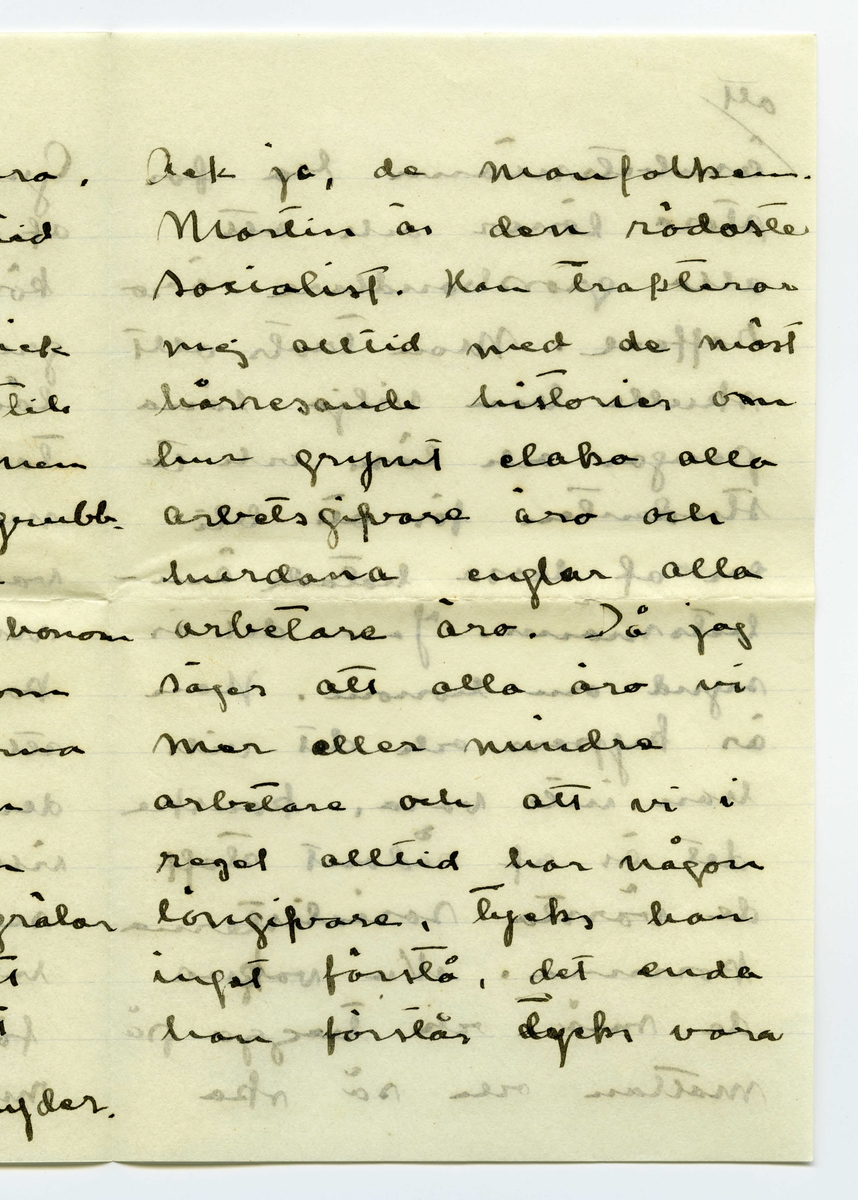 Ack ja, de manfolken.
Martin är den rödaste
socialist. Han trakterar
mej alltid med de mäst
hårresande historier om
hur grymt elaka alla
arbetsgifvare äro och
hurdana englar alla
arbetare äro. Då jag
säger att alla äro vi
mer eller mindre
arbetare, och att vi i
regel alltid har någon
löngifvare, tycks han
inget förstå, det enda
han förstår tycks vara